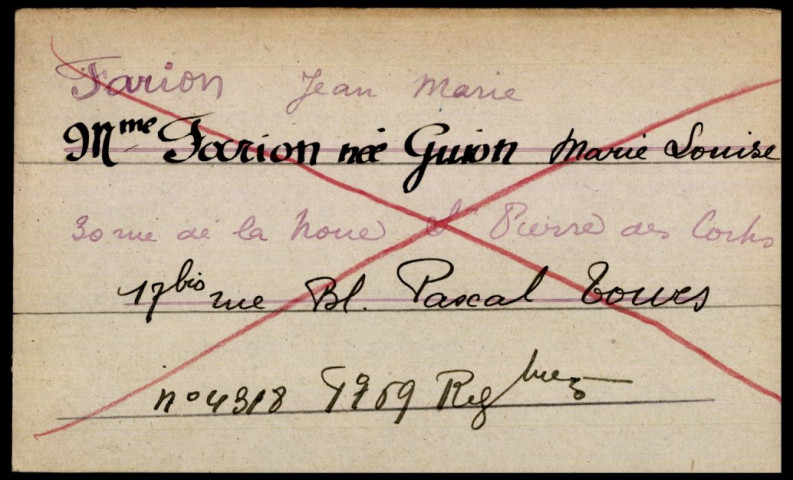 Farion Jean Marie
Mme Farion née Guion Marie Louise
30 rue de la Noue St Pierre des Corps
17bis rue Bl. Pascal Tours
no 4318 Reg